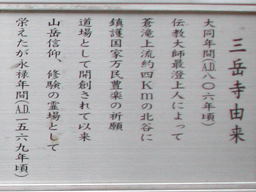 三岳寺由来
大同年間(A.D.八〇六年頃)
伝教大師最澄上人によって
蒼滝上流約四Kmの北谷に
鎮護国家万民豊楽の祈願
道場として開創されて以来
山岳信仰、修験の霊場として
栄えたが永禄年間(A.D.一五六九年頃)